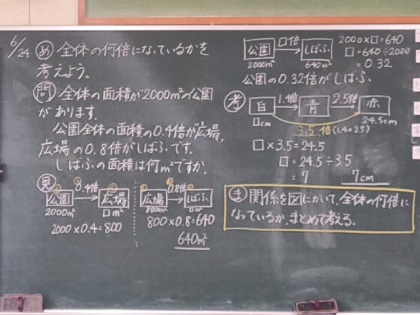 6/24 め 全体の何倍になっているかを
考えよう。
問 全体の面積が2000m²の公園
があります。
公園全体の面積の0.4倍が広場、
広場の0.8倍がしばふです。
しばふの面積は何m²ですか。
見
0.4倍
公園 広場
2000m² □m²
2000×0.4=800
0.8倍
広場 しばふ
800m² □m²
800×0.8=640
640m²
□倍
公園 しばふ
2000m² 640m²
2000×□=640
□=640÷2000
=0.32
公園の0.32倍がしばふ。
考
1.4倍 2.5倍
白 青 赤
□cm 24.5cm
3.5倍 (1.4×2.5)
□×3.5=24.5
□=24.5÷3.5
=7 7cm
ま 関係を図にかいて、全体の何倍に
なっているか、まとめて考える。